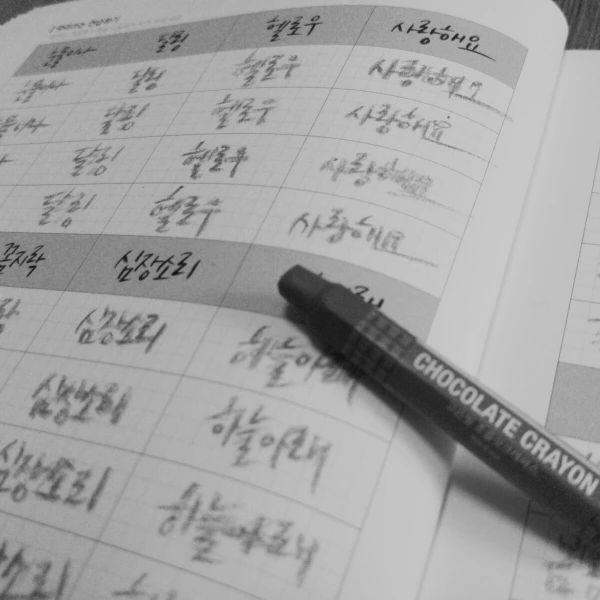 달링 헬로우 사랑해요
달링 헬로우 사랑해요
달링 헬로우 사랑해요
달링 헬로우 사랑해요
달링 헬로우 사랑해요
꼼지락 심장소리
심장소리 하늘아래
심장소리 하늘아래
심장소리 하늘아래
CHOCOLATE CRAYON